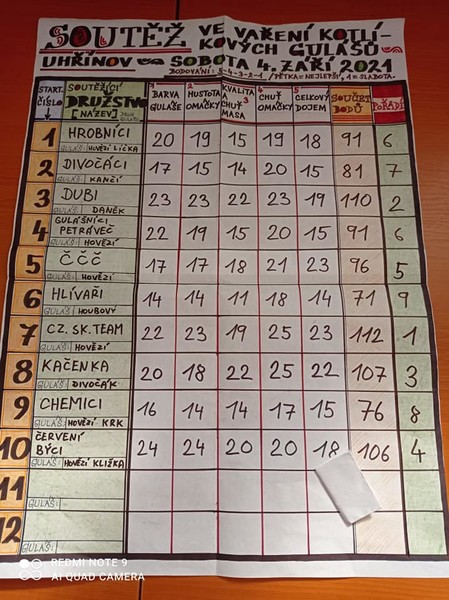 SOUTĚŽ VE VAŘENÍ KOTLÍ-
KOVÝCH GULÁŠŮ
UHŘÍNOV SOBOTA 4. ZÁŘÍ 2021
BODOVÁNÍ: 5-4-3-2-1 / PĚTKA = NEJLEPŠÍ, 1 = SLABOTA.
START. ČÍSLO SOUTĚŽÍCÍ DRUŽSTVO [NÁZEV] 1 BARVA GULÁŠE 2 HUSTOTA OMÁČKY 3 KVALITA CHUŤ MASA 4 CHUŤ OMÁČKY 5 CELKOVÝ DOJEM SOUČET BODŮ POŘADÍ
1 HROBNÍCI 20 19 15 19 18 91 6
GULÁŠ: HOVĚZÍ LÍČKA
2 DIVOČÁCI 17 15 14 20 15 81 7
GULÁŠ: KANČÍ
3 DUBI 23 23 22 23 19 110 2
GULÁŠ: DANĚK
4 GULÁŠNÍCI PETRÁVEČ 22 19 15 20 15 91 6
GULÁŠ: HOVĚZÍ
5 ČČČ 17 17 18 21 23 96 5
GULÁŠ: HOVĚZÍ
6 HLÍVAŘI 14 14 11 18 14 71 9
GULÁŠ: HOUBOVÝ
7 CZ. SK. TEAM 22 23 19 25 23 112 1
GULÁŠ: HOVĚZÍ
8 KAČENKA 20 18 22 25 22 107 3
GULÁŠ: DIVOČÁK
9 CHEMICI 16 14 14 17 15 76 8
GULÁŠ: HOVĚZÍ KRK
10 ČERVENÍ BÝCI 24 24 20 20 18 106 4
GULÁŠ: HOVĚZÍ KLIŽKA
11
GULÁŠ:
12
GULÁŠ:
REDMI NOTE 9
AI QUAD CAMERA